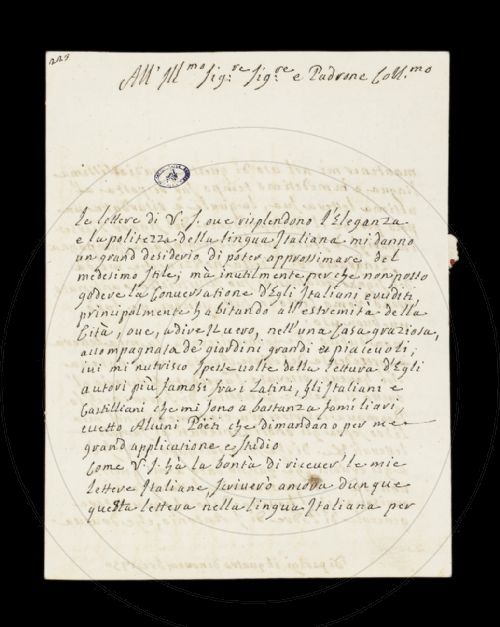 229
All' Ill.mo Sig.re Sig.re e Padrone Coll.mo
le lettere di V. S. oue risplendono l'Eleganza
e la politezza della lingua Italiana mi danno
un grand desiderio di poter approssimare del
medesimo stile; mà inutilmente perche non posso
godere la Conuersatione d'Egli Italiani eruditi,
principalmente habitando all'estremità della
Città, oue, a dire il uero, nell'una Casa graziosa,
accompagnata de' giardini grandi e piaceuoli;
iui mi nutrisco spesse uolte della lettura d'Egli
autori più famosi fra i Latini, gli Italiani e
Castilliani che mi sono a bastanza familiari,
eccetto Alcuni Poëti che dimandano per me
grand applicatione e studio
Come V. S. hà la bontà di riceuer' le mie
lettere Italiane, scriuerò ancora dunque
questa lettera nella lingua Italiana per